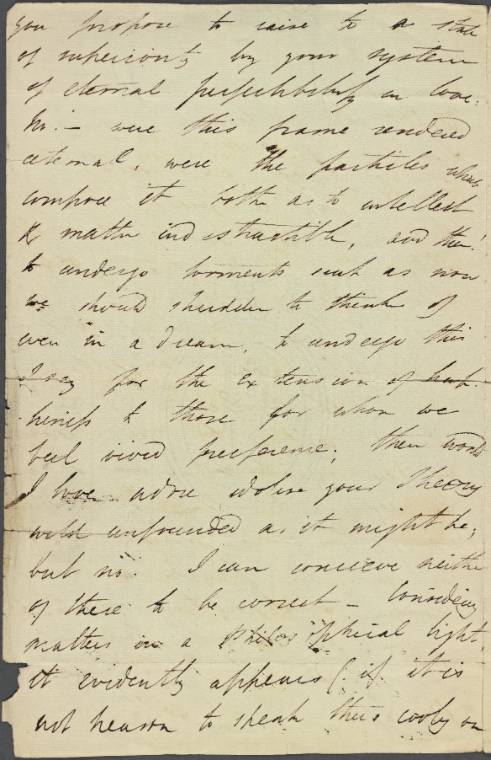 you propose to raise to a state
of superiority by your system
of eternal perfectibility in love.
No. — were this frame rendered
eternal, were the particles which
compose it both as to intellect
& matter indestructible, and then
to undergo torments such as now
we should shudder to think of
even in a dream, to undergo this
I say for the extension of hap-
piness to those for whom we
feel vivid preference; then would
I love adore idolise your Theory
wild unfounded as it might be;
but no. I can conceive neither
of these to be correct — Considering
matters in a philosophical light,
it evidently appears (if it is
not treason to speak thus cooly on